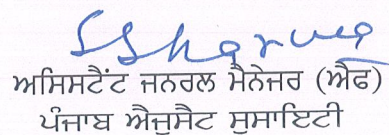 SSharma
ਅਸਿਸਟੈਂਟ ਜਨਰਲ ਮੈਨੇਜਰ (ਐਫ)
ਪੰਜਾਬ ਐਜੂਸੈਟ ਸੁਸਾਇਟੀ